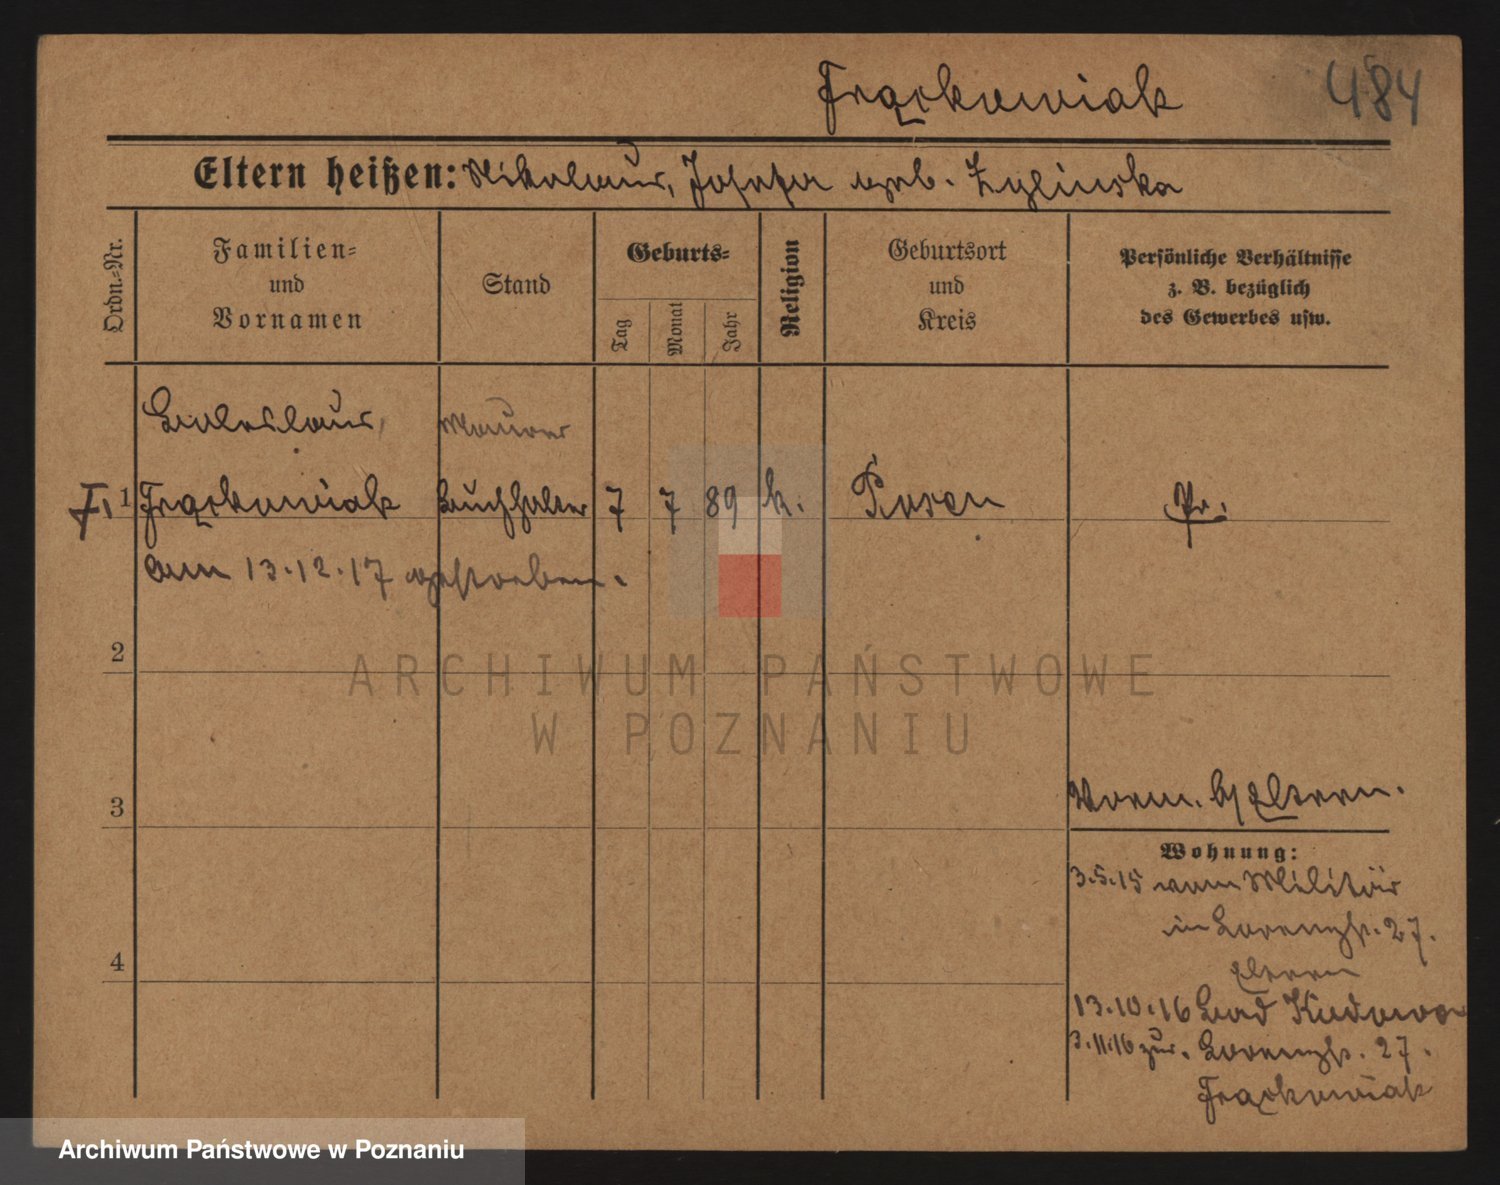 Frąckowiak
484
Eltern heißen: Nikolaus, Josefa geb. Zylinska
Ordn.-Nr.
Familien-
und
Vornamen
Stand
Geburts-
Tag
Monat
Jahr
Religion
Geburtsort
und
Kreis
Persönliche Verhältnisse
z. B. bezüglich
des Gewerbes usw.
Boleslaus, Maurer
1 Frąckowiak Buchhalter 7 7 89 k. Posen Pr.
am 13.12.17 gestorben.
2
3
4
Vorm. b/ Eltern.
Wohnung:
3.5.15 vom Militär
in Lorenzstr. 27.
Eltern
13.10.16 Bad Kudowa
3.11.16 zur. Lorenzstr. 27.
Frąckowiak
ARCHIWUM PAŃSTWOWE
W POZNANIU
Archiwum Państwowe w Poznaniu